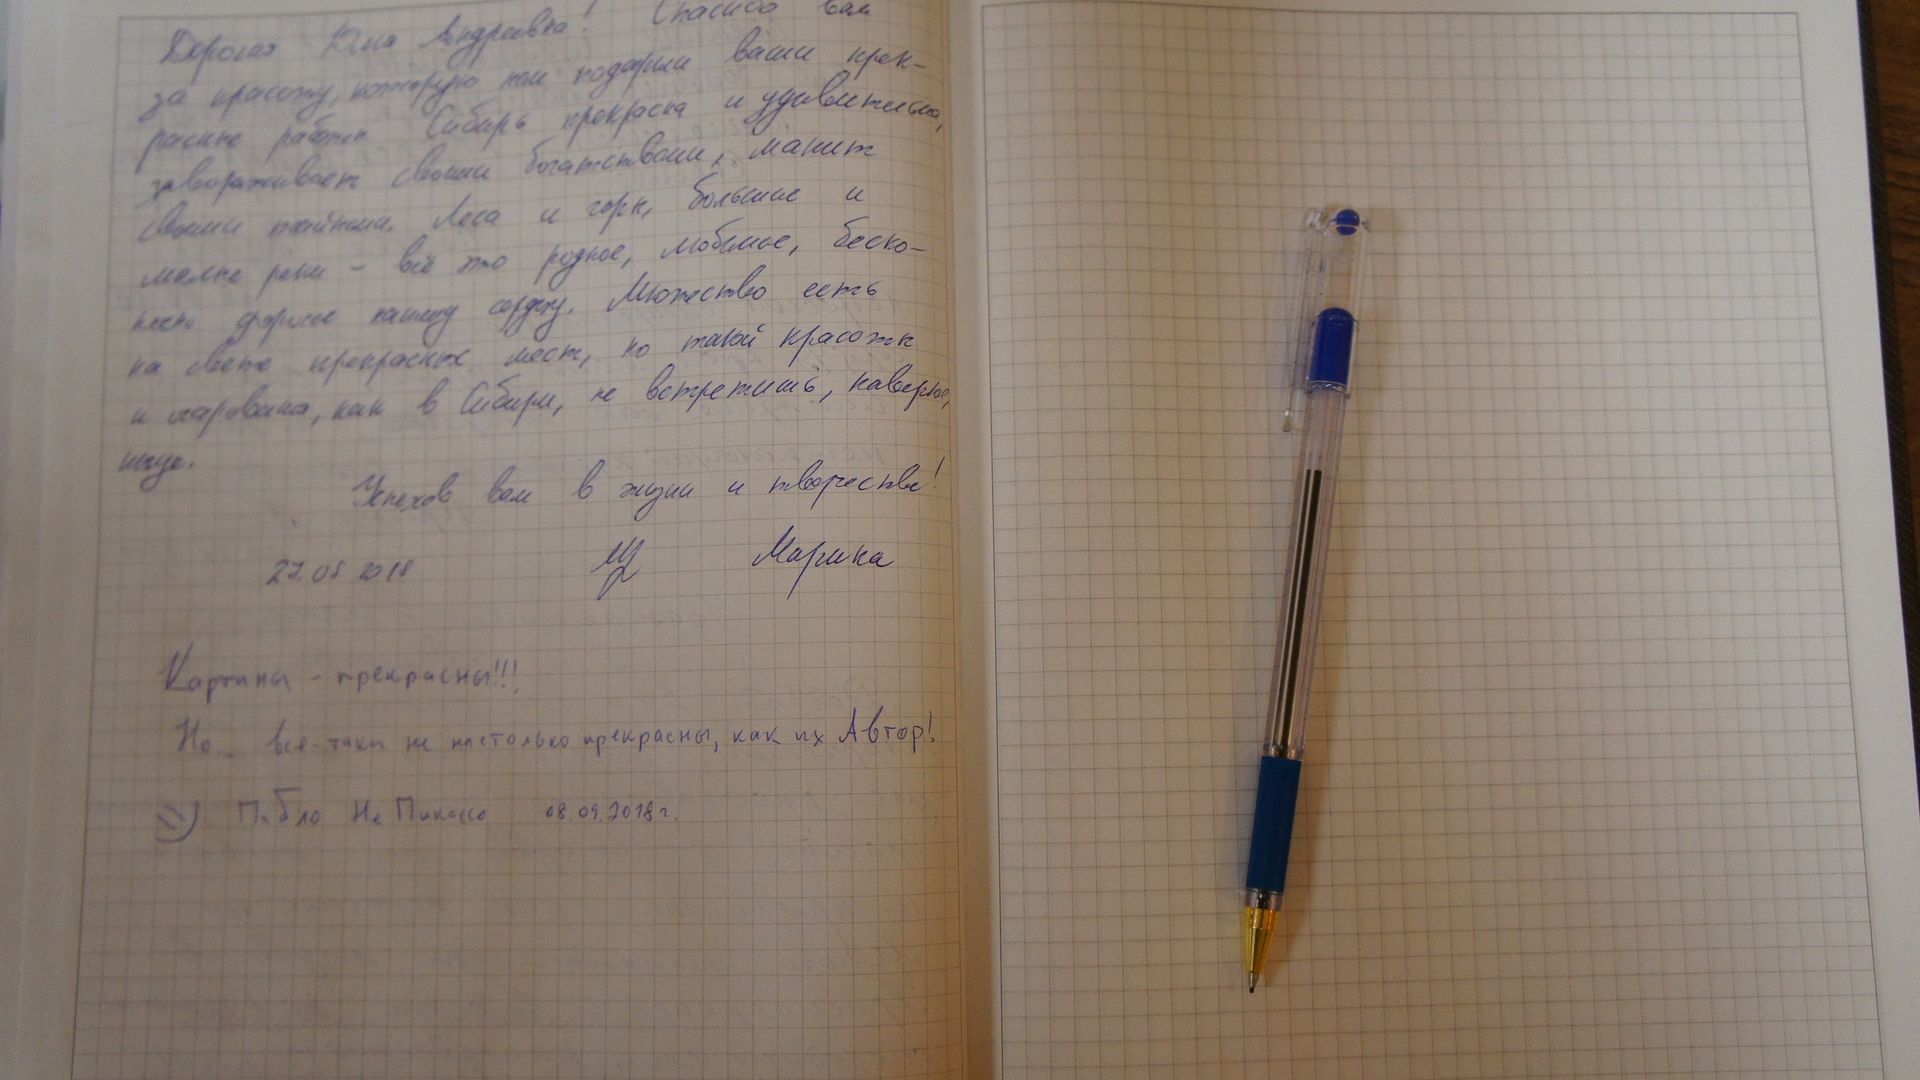 Дорогая Юлия Андреевна! Спасибо вам
за красоту, которую нам подарили ваши прек-
расные работы. Сибирь прекрасна и удивительна,
завораживает своими богатствами, манит
своими тайнами. Леса и горы, большие и
малые реки - всё это родное, любимое, беско-
нечно дорогое нашему сердцу. Множество есть
на свете прекрасных мест, но такой красоты
и очарования, как в Сибири, не встретишь, наверное,
нигде.
Успехов вам в жизни и творчестве!
27.08 2018 Марина
Картины - прекрасны!!!
Но.. всё-таки не настолько прекрасны, как их Автор!
=) Пабло Не Пикассо 08.09.2018г.